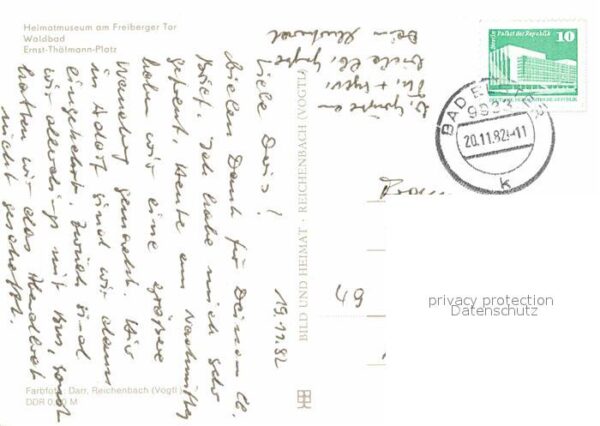 Heimatmuseum am Freiberger Tor
Waldbad
Ernst-Thälmann-Platz
19.11.82
Liebe Doris!
Vielen Dank für Deinen lb.
Brief. Ich habe mich sehr
gefreut. Heute am Nachmittag
haben wir eine größere
Wanderung gemacht. Wir
in Adorf sind wir dann
eingekehrt. Zurück sind
wir allerdings mit Bus, sonst
hätten wir das Abendbrot
nicht geschafft.
Viele lb. Grüße
Dein
BILD UND HEIMAT · REICHENBACH (VOGTL)
Farbfoto: Darr, Reichenbach (Vogtl.)
DDR 0,20 M
Berlin Palast der Republik
10
DEUTSCHE DEMOKRATISCHE REPUBLIK
BAD
20.11.82-11
k
49
privacy protection
Datenschutz